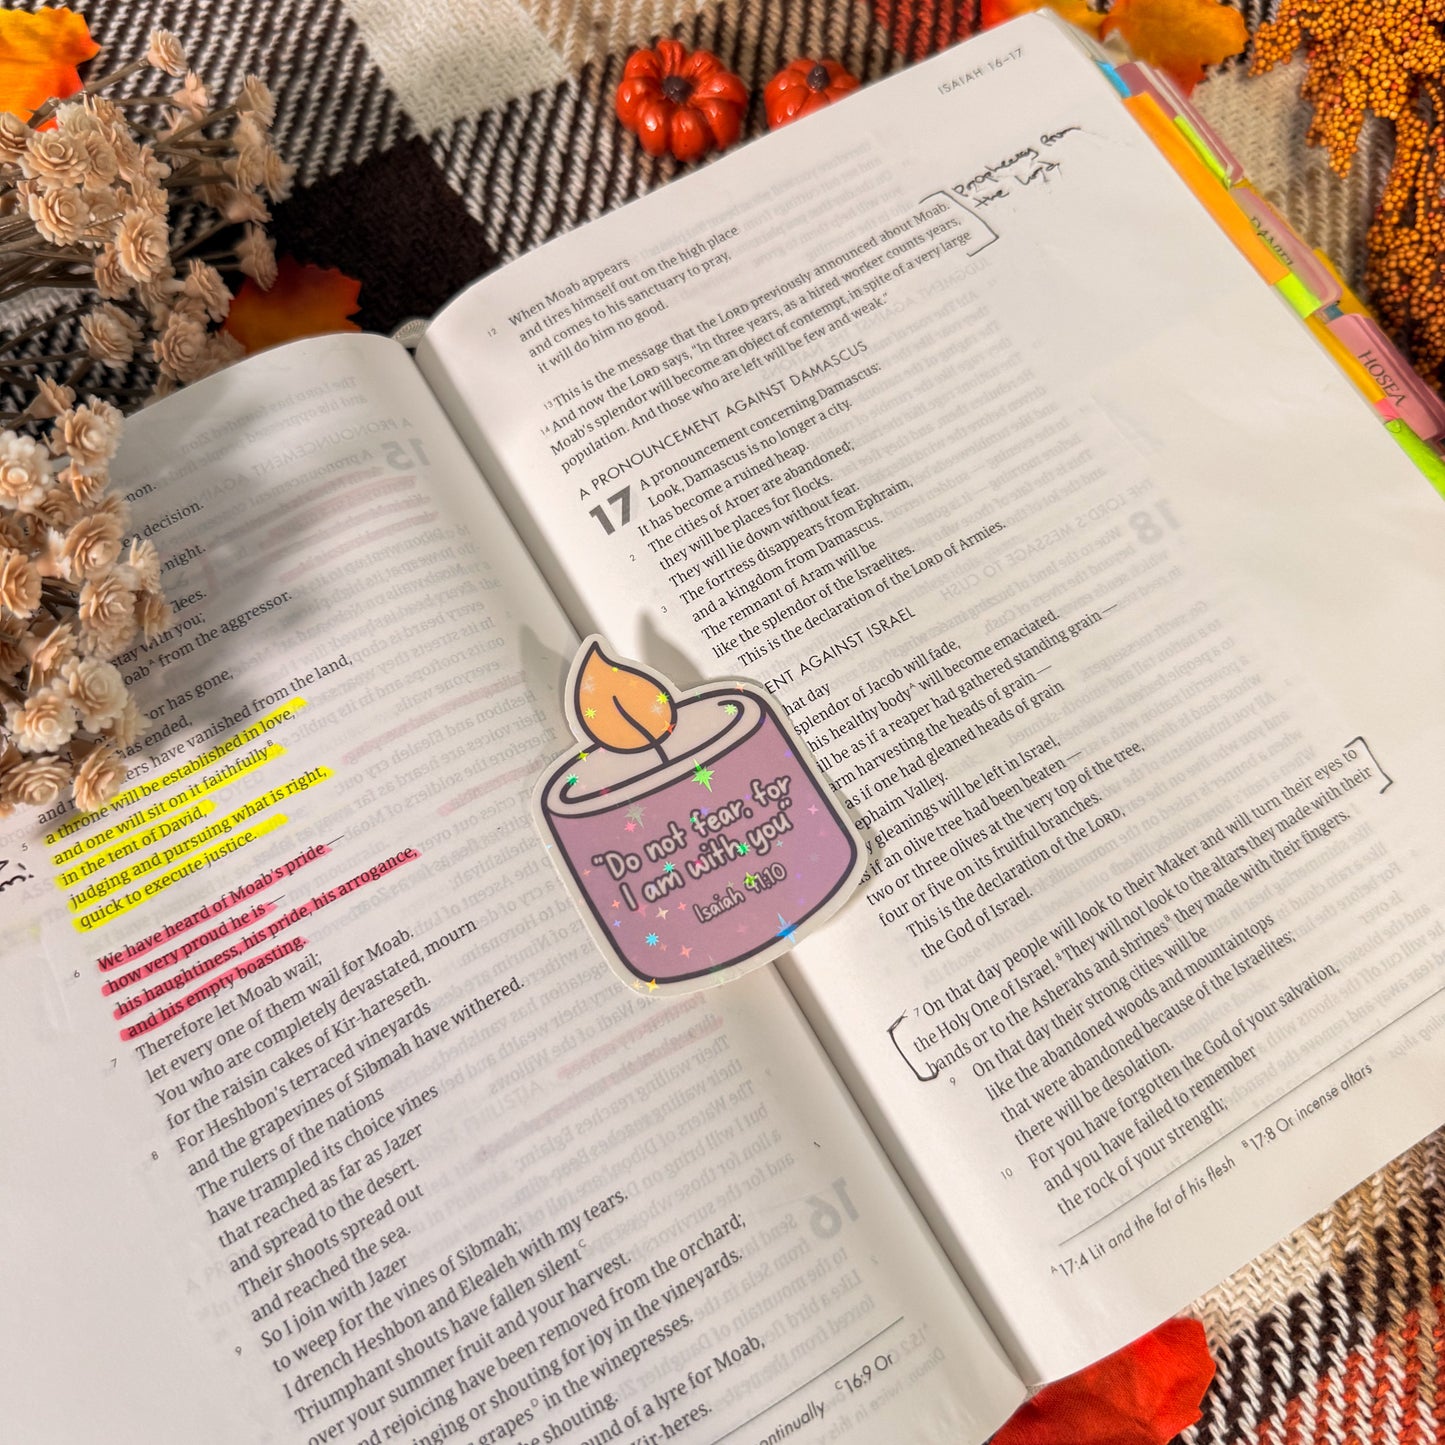 non.
a decision.
night.
stay with you;
from the aggressor.
has gone,
has ended,
have vanished from the land,
5
a throne will be established in love,
and one will sit on it faithfully B
in the tent of David,
judging and pursuing what is right,
quick to execute justice.
6 We have heard of Moab's pride —
how very proud he is —
his haughtiness, his pride, his arrogance,
and his empty boasting.
7 Therefore let Moab wail;
let every one of them wail for Moab.
You who are completely devastated, mourn
for the raisin cakes of Kir-hareseth.
8 For Heshbon's terraced vineyards
and the grapevines of Sibmah have withered.
The rulers of the nations
have trampled its choice vines
that reached as far as Jazer
and spread to the desert.
Their shoots spread out
and reached the sea.
9 So I join with Jazer
to weep for the vines of Sibmah;
I drench Heshbon and Elealeh with my tears.
Triumphant shouts have fallen silent C
over your summer fruit and your harvest.
and rejoicing have been removed from the orchard;
singing or shouting for joy in the vineyards.
grapes D in the winepresses.
the shouting.
sound of a lyre for Moab,
Kir-heres.
continually C 16:9 Or
ISAIAH 16–17
12 When Moab appears
and tires himself out on the high place
and comes to his sanctuary to pray,
it will do him no good.
13 This is the message that the LORD previously announced about Moab.
14 And now the LORD says, "In three years, as a hired worker counts years,
Moab's splendor will become an object of contempt, in spite of a very large
population. And those who are left will be few and weak."
from
the Lord
A PRONOUNCEMENT AGAINST DAMASCUS
17 A pronouncement concerning Damascus:
Look, Damascus is no longer a city.
It has become a ruined heap.
2 The cities of Aroer are abandoned;
they will be places for flocks.
They will lie down without fear.
3 The fortress disappears from Ephraim,
and a kingdom from Damascus.
The remnant of Aram will be
like the splendor of the Israelites.
This is the declaration of the LORD of Armies.
AGAINST ISRAEL
that day
splendor of Jacob will fade,
his healthy body A will become emaciated.
will be as if a reaper had gathered standing grain —
arm harvesting the heads of grain —
as if one had gleaned heads of grain
Valley.
gleanings will be left in Israel,
as if an olive tree had been beaten —
two or three olives at the very top of the tree,
four or five on its fruitful branches.
This is the declaration of the LORD,
the God of Israel.
7 On that day people will look to their Maker and will turn their eyes to
the Holy One of Israel. 8 They will not look to the altars they made with their
hands or to the Asherahs and shrines B they made with their fingers.
9 On that day their strong cities will be
like the abandoned woods and mountaintops
that were abandoned because of the Israelites;
there will be desolation.
10 For you have forgotten the God of your salvation,
and you have failed to remember
the rock of your strength;
A 17:4 Lit and the fat of his flesh B 17:8 Or incense altars
"Do not fear, for
I am with you"
Isaiah 41:10
DANIEL
HOSEA